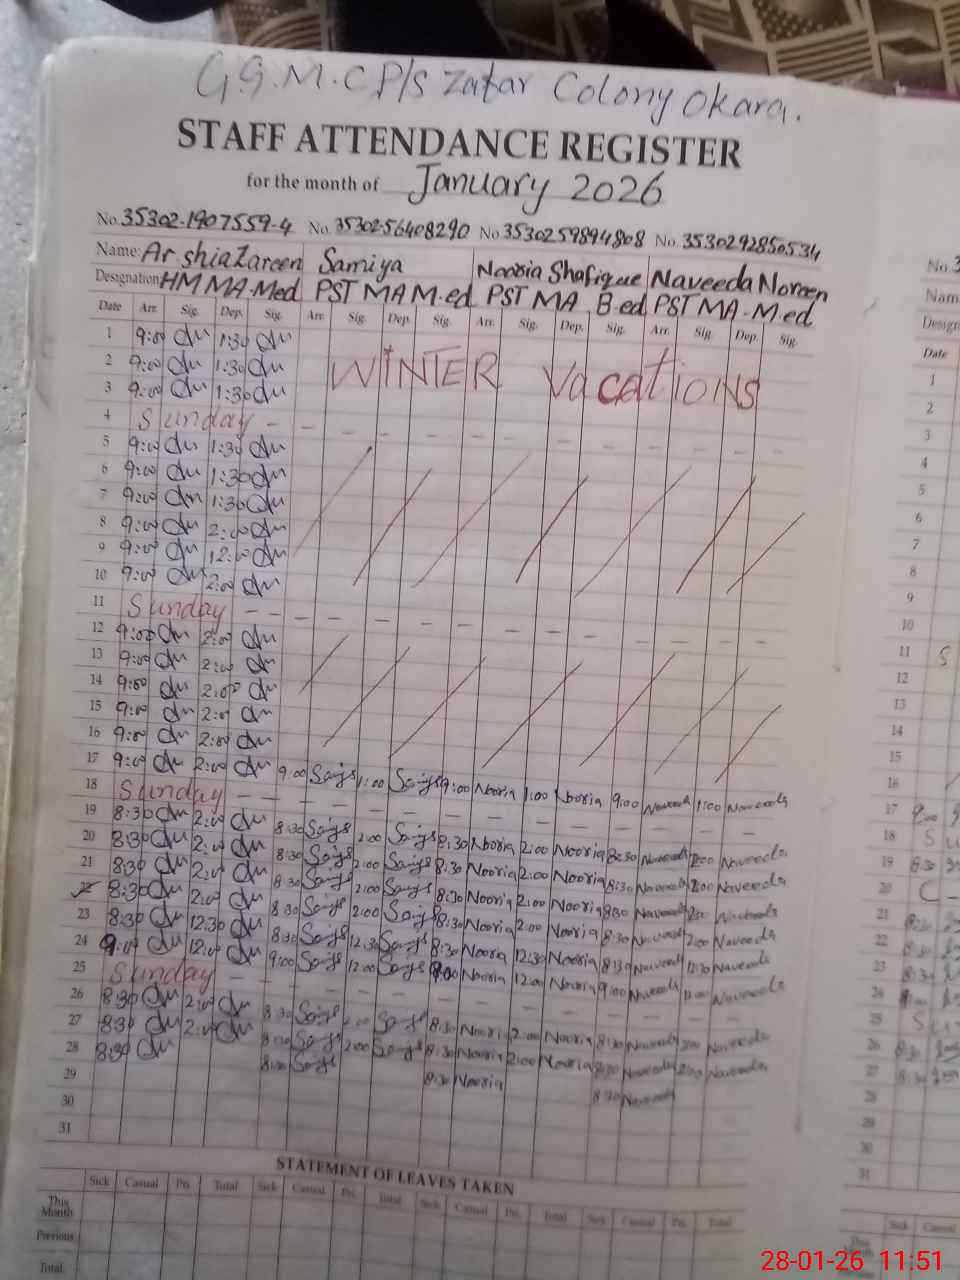 G.G.M.C P/S Zafar Colony Okara.
STAFF ATTENDANCE REGISTER
for the month of January 2026
No. 35302-1907559-4 No. 35302-56408290 No. 3530259894808 No. 3530292850534
Name: Arshia Zareen Samiya Nooria Shafique Naveeda Noreen
Designation: HM MA M.ed PST MA M.ed PST MA B.ed PST MA M.ed
Date Arr. Sig. Dep. Sig. Arr. Sig. Dep. Sig. Arr. Sig. Dep. Sig. Arr. Sig. Dep. Sig.
1 9:00 1:30
WINTER Vacations
2 9:00 1:30
3 9:00 1:30
4 Sunday
5 9:00 1:30
6 9:00 1:30
7 9:00 1:30
8 9:00 2:00
9 9:00 12:00
10 9:00 2:00
11 Sunday
12 9:00 2:00
13 9:00 2:00
14 9:00 2:00
15 9:00 2:00
16 9:00 2:00
17 9:00 2:00 9:00 1:00 9:00 Nooria 1:00 Nooria 9:00 Naveeda 1:00 Naveeda
18 Sunday
19 8:30 2:00 8:30 2:00 8:30 Nooria 2:00 Nooria 8:30 Naveeda 2:00 Naveeda
20 8:30 2:00 8:30 2:00 8:30 Nooria 2:00 Nooria 8:30 Naveeda 2:00 Naveeda
21 8:30 2:00 8:30 2:00 8:30 Nooria 2:00 Nooria 8:30 Naveeda 2:00 Naveeda
22 8:30 2:00 8:30 2:00 8:30 Nooria 2:00 Nooria 8:30 Naveeda 2:00 Naveeda
23 8:30 12:30 8:30 12:30 8:30 Nooria 12:30 Nooria 8:30 Naveeda 12:30 Naveeda
24 9:00 12:00 9:00 12:00 9:00 Nooria 12:00 Nooria 9:00 Naveeda 12:00 Naveeda
25 Sunday
26 8:30 2:00 8:30 2:00 8:30 Nooria 2:00 Nooria 8:30 Naveeda 2:00 Naveeda
27 8:30 2:00 8:30 2:00 8:30 Nooria 2:00 Nooria 8:30 Naveeda 2:00 Naveeda
28 8:30 8:30 8:30 Nooria 8:30 Naveeda
29
30
31
STATEMENT OF LEAVES TAKEN
Sick Casual Pri. Total Sick Casual Pri. Total Sick Casual Pri. Total Sick Casual Pri. Total
This Month
Previous
Total
No. 3
Nam
Design
Date
1
2
3
4
5
6
7
8
9
10
11 S
12
13
14
15
16
17 9:00
18 S
19 8:30
20
21 8:30
22 8:30
23 8:30
24 9:00
25 S
26 8:30
27 8:30
28
29
30
31
Sick Casual
This Month
Previous
Total
28-01-26 11:51